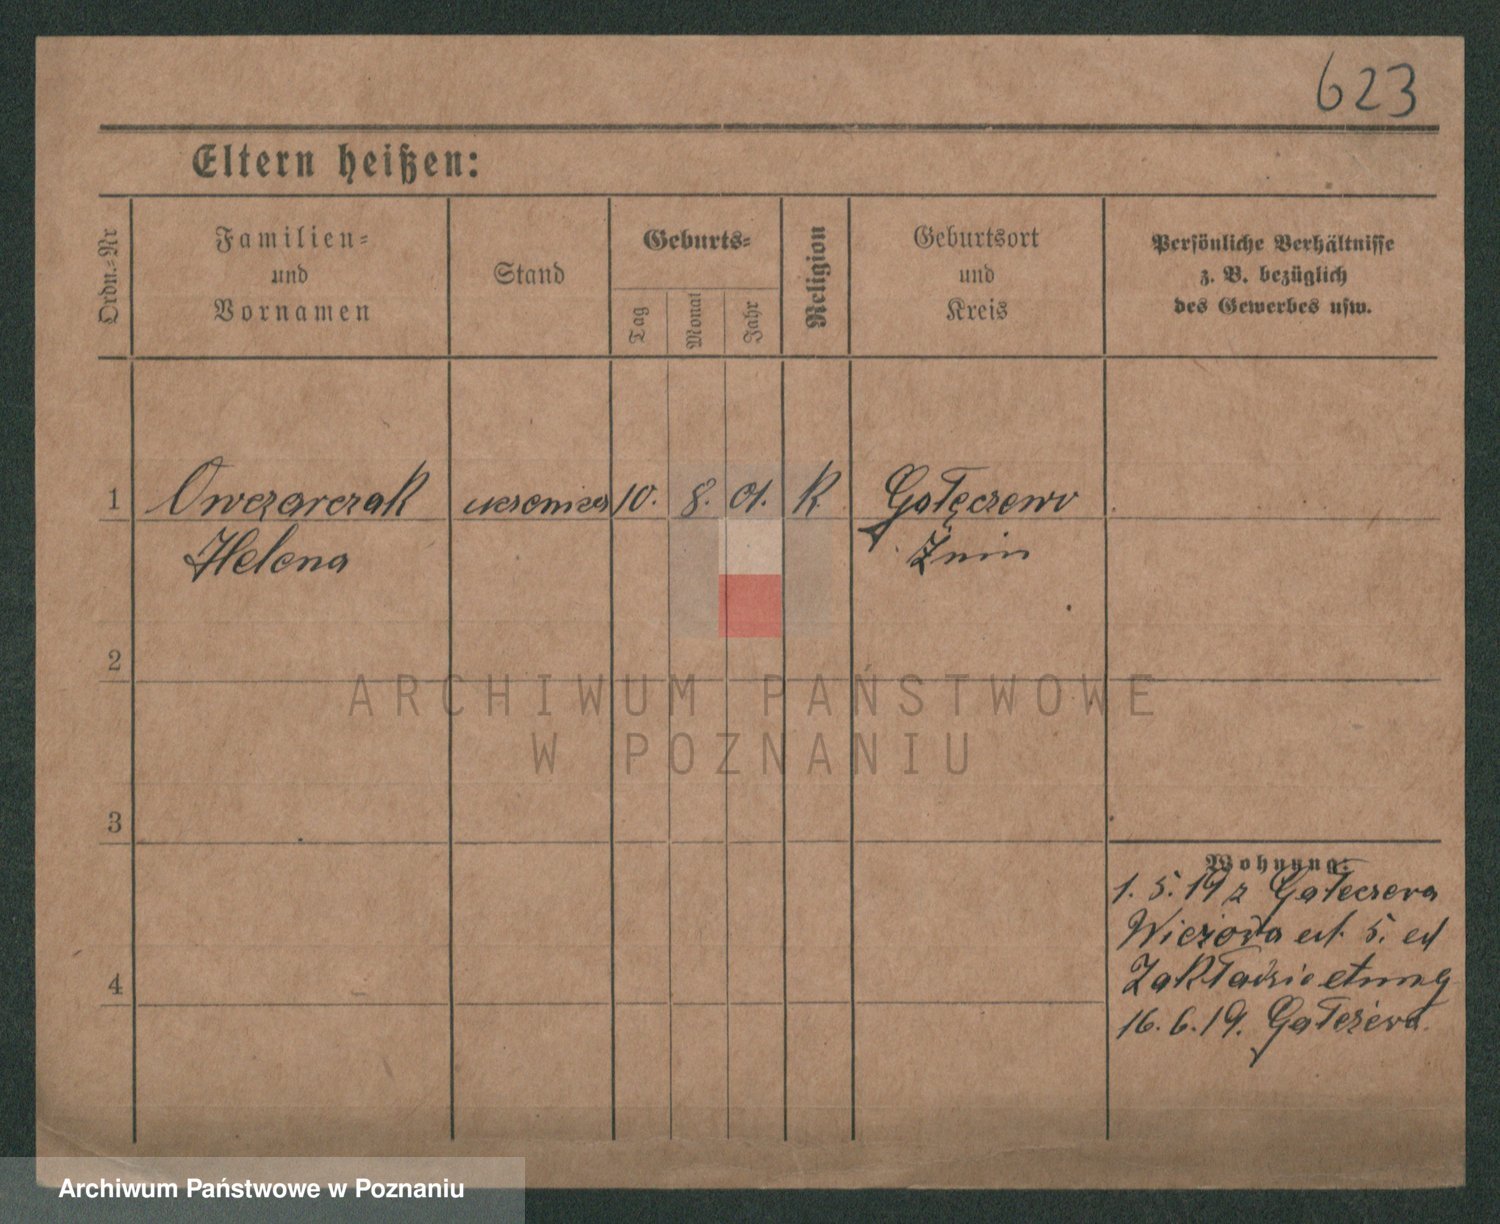 623
Eltern heißen:
Ordn.-Nr
Familien-
und
Vornamen
Stand
Geburts-
Tag
Monat
Jahr
Religion
Geburtsort
und
Kreis
Persönliche Verhältnisse
z. B. bezüglich
des Gewerbes usw.
1 Owczarczak uczenica 10. 8. 01. K. Gałęczewo
Helena Żnin
2
ARCHIWUM PAŃSTWOWE
W POZNANIU
3
Wohnung:
1. 5. 19 z Gałeczewa
5.
4
16. 6. 19.
Archiwum Państwowe w Poznaniu